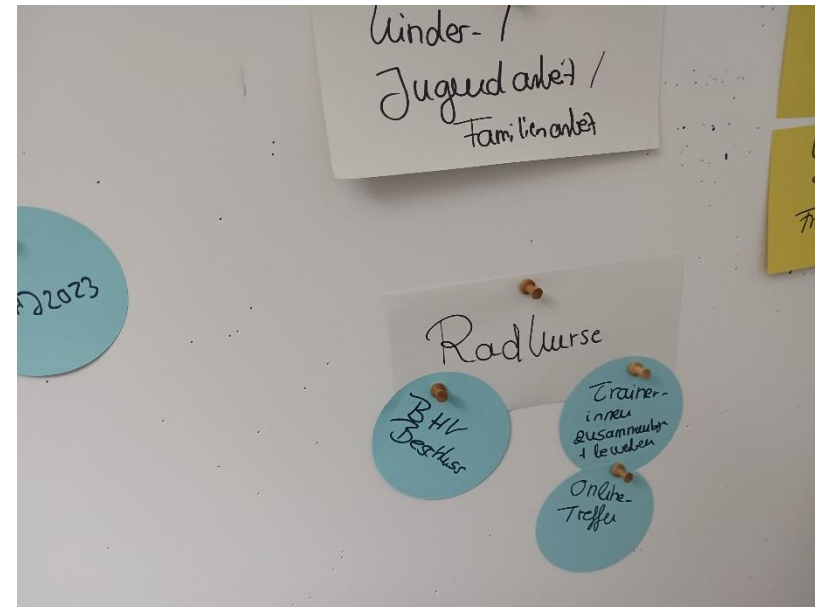 Kinder- /
Jugendarbeit /
Familienarbeit
2023
Radkurse
BHV
Beschluss
Trainer-
innen
+ bewerben
Online-
Treffen